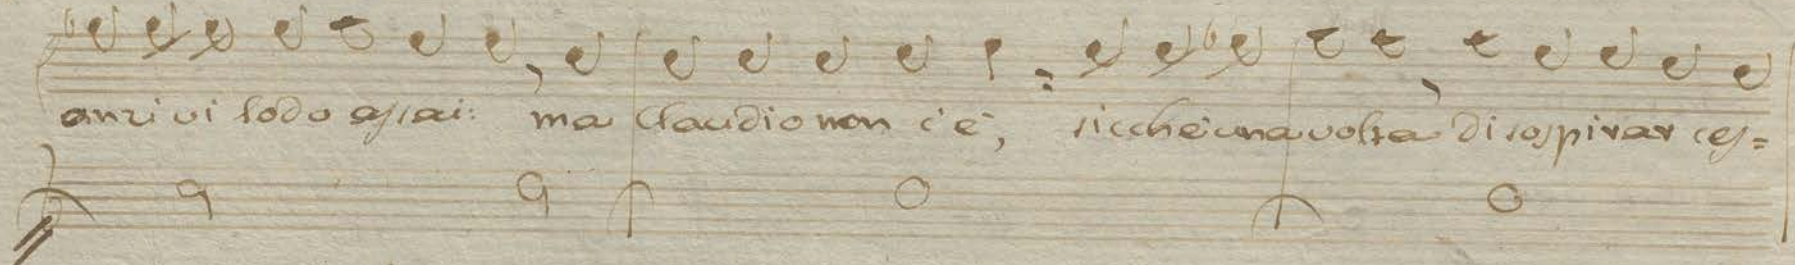 anzi vi lodo assai: ma Claudio non c'è, sicchè una volta di sospirar ces=